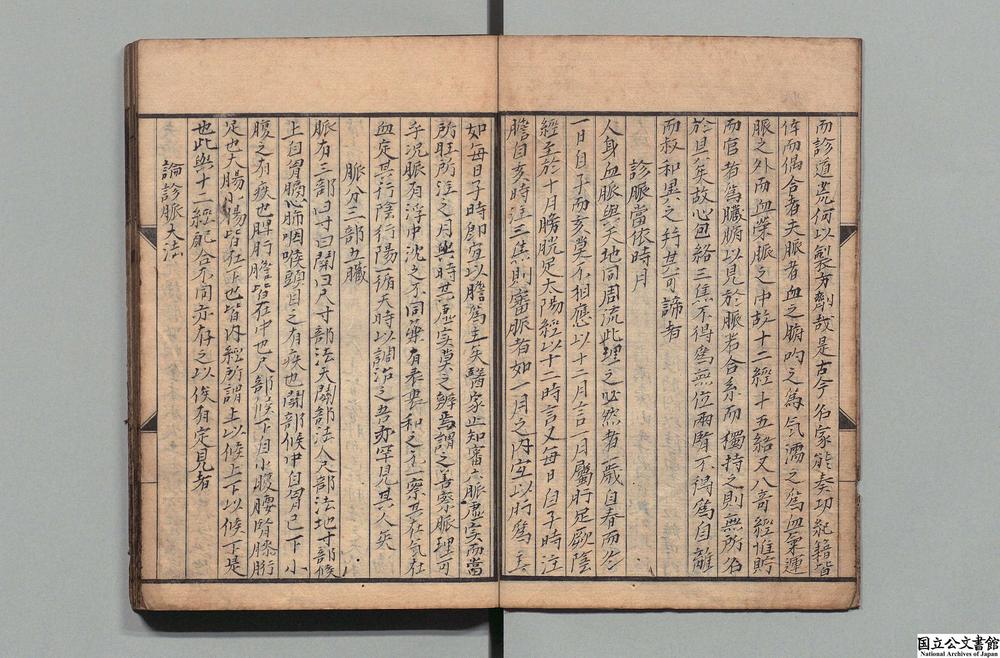 而診道荒何以製方劑哉是古今名家能奏功紀籍皆
倖而偶合者夫脈者血之腑昀之為気濡之為血氣運
脈之外而血榮脈之中故十二經十五絡又八奇經惟
而官者為臟腑以見於脈若合系而獨持之則無所名
於旦矣故心包絡三焦不得為無位兩腎不得為自離
而叔和異之特其可諦者
診脈當依時月
人身血脈與天地同周流此理之必然者一歲自春而冬
一日自子而亥莫不相應以十二月言一月屬肝足厥陰
經至於十月膀胱足太陽經以十二時言又每日自子時注
膽自亥時注三焦則審脈者如一月之內宜以肝為主
如每日子時即宜以膽為主矣醫家止知審六脈虛实而當
所旺所注之月與時其虛实莫之辨焉謂之善察脈理可
乎况脈有浮中沈之不同藥有表裏和之不一察其在氣在
血定其行陰行陽一循天時以調治之吾亦罕見其人矣
脈分三部五臟
脈有三部曰寸曰關曰尺寸部法天關部法人尺部法地寸部候
上自胷膈心肺咽喉頭目之有疾也關部候中自胷已下小
腹之有疾也脾肝膽皆在中也尺部候下自小腹腰腎膝胻
足也大腸小腸皆在下也皆内經所謂上以候上下以候下是
也此與十二經配合不同亦存之以俟有定見者
論診脈大法
国立公文書館
National Archives of Japan